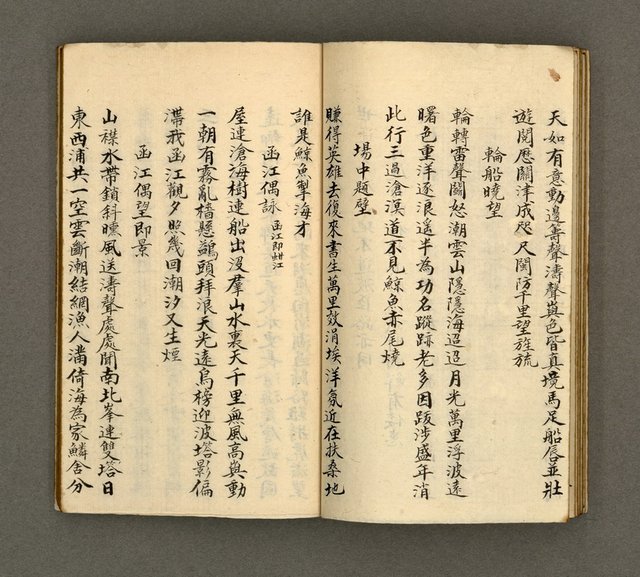 天如有意動邊籌聲濤聲與色皆真境馬足船唇並壯
遊閱歷關津成咫尺閩防千里望旌旒
輪船曉望
輪轉雷聲關怒潮雲山隱隱海迢迢月光萬里浮波遠
曙色重洋逐浪遙半為功名蹤跡老多因跋涉盛年消
此行三過滄溟道不見鯨魚赤尾燒
場中題壁
賺得英雄去復來書生萬里效涓埃洋氛近在扶桑地
誰是鯨魚掣海才
函江偶詠 函江即蚶江
屋連滄海樹連船出沒羣山水裏天千里無風高與動
一朝有霧亂檣懸鷁頭拜浪天光遠烏榜迎波塔影偏
滯我函江觀夕照幾回潮汐又生煙
函江偶望即景
山襟水帶鎖斜曛風送濤聲處處聞南北峯連雙塔日
東西浦共一空雲斷潮結網漁人滿倚海為家鱗舍分